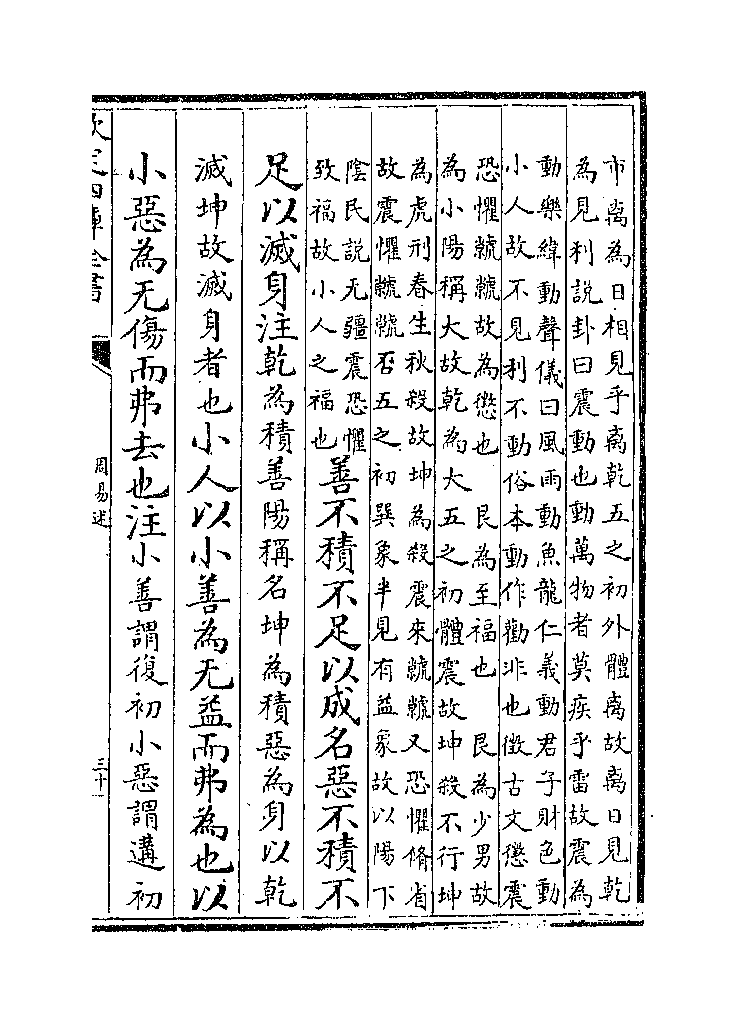 市离為日相見乎离乾五之初外體离故离日見乾
為見利說卦曰震動也動萬物者莫疾乎雷故震為
動樂緯動聲儀曰風雨動魚龍仁義動君子財色動
小人故不見利不動俗本動作勸非也徴古文懲震
恐懼虩虩故為懲也　艮為至福也　艮為少男故
為小陽稱大故乾為大五之初體震故坤殺不行坤
為虎刑春生秋殺故坤為殺震來虩虩又恐懼脩省
故震懼虩虩否五之初巽象半見有益象故以陽下
陰民說无疆震恐懼
致福故小人之福也
善不積不足以成名惡不積不
足以滅身注乾為積善陽稱名坤為積惡為身以乾
滅坤故滅身者也小人以小善為无益而弗為也以
小惡為无傷而弗去也注小善謂復初小惡謂遘初
欽定四庫全書
周易述
三十一